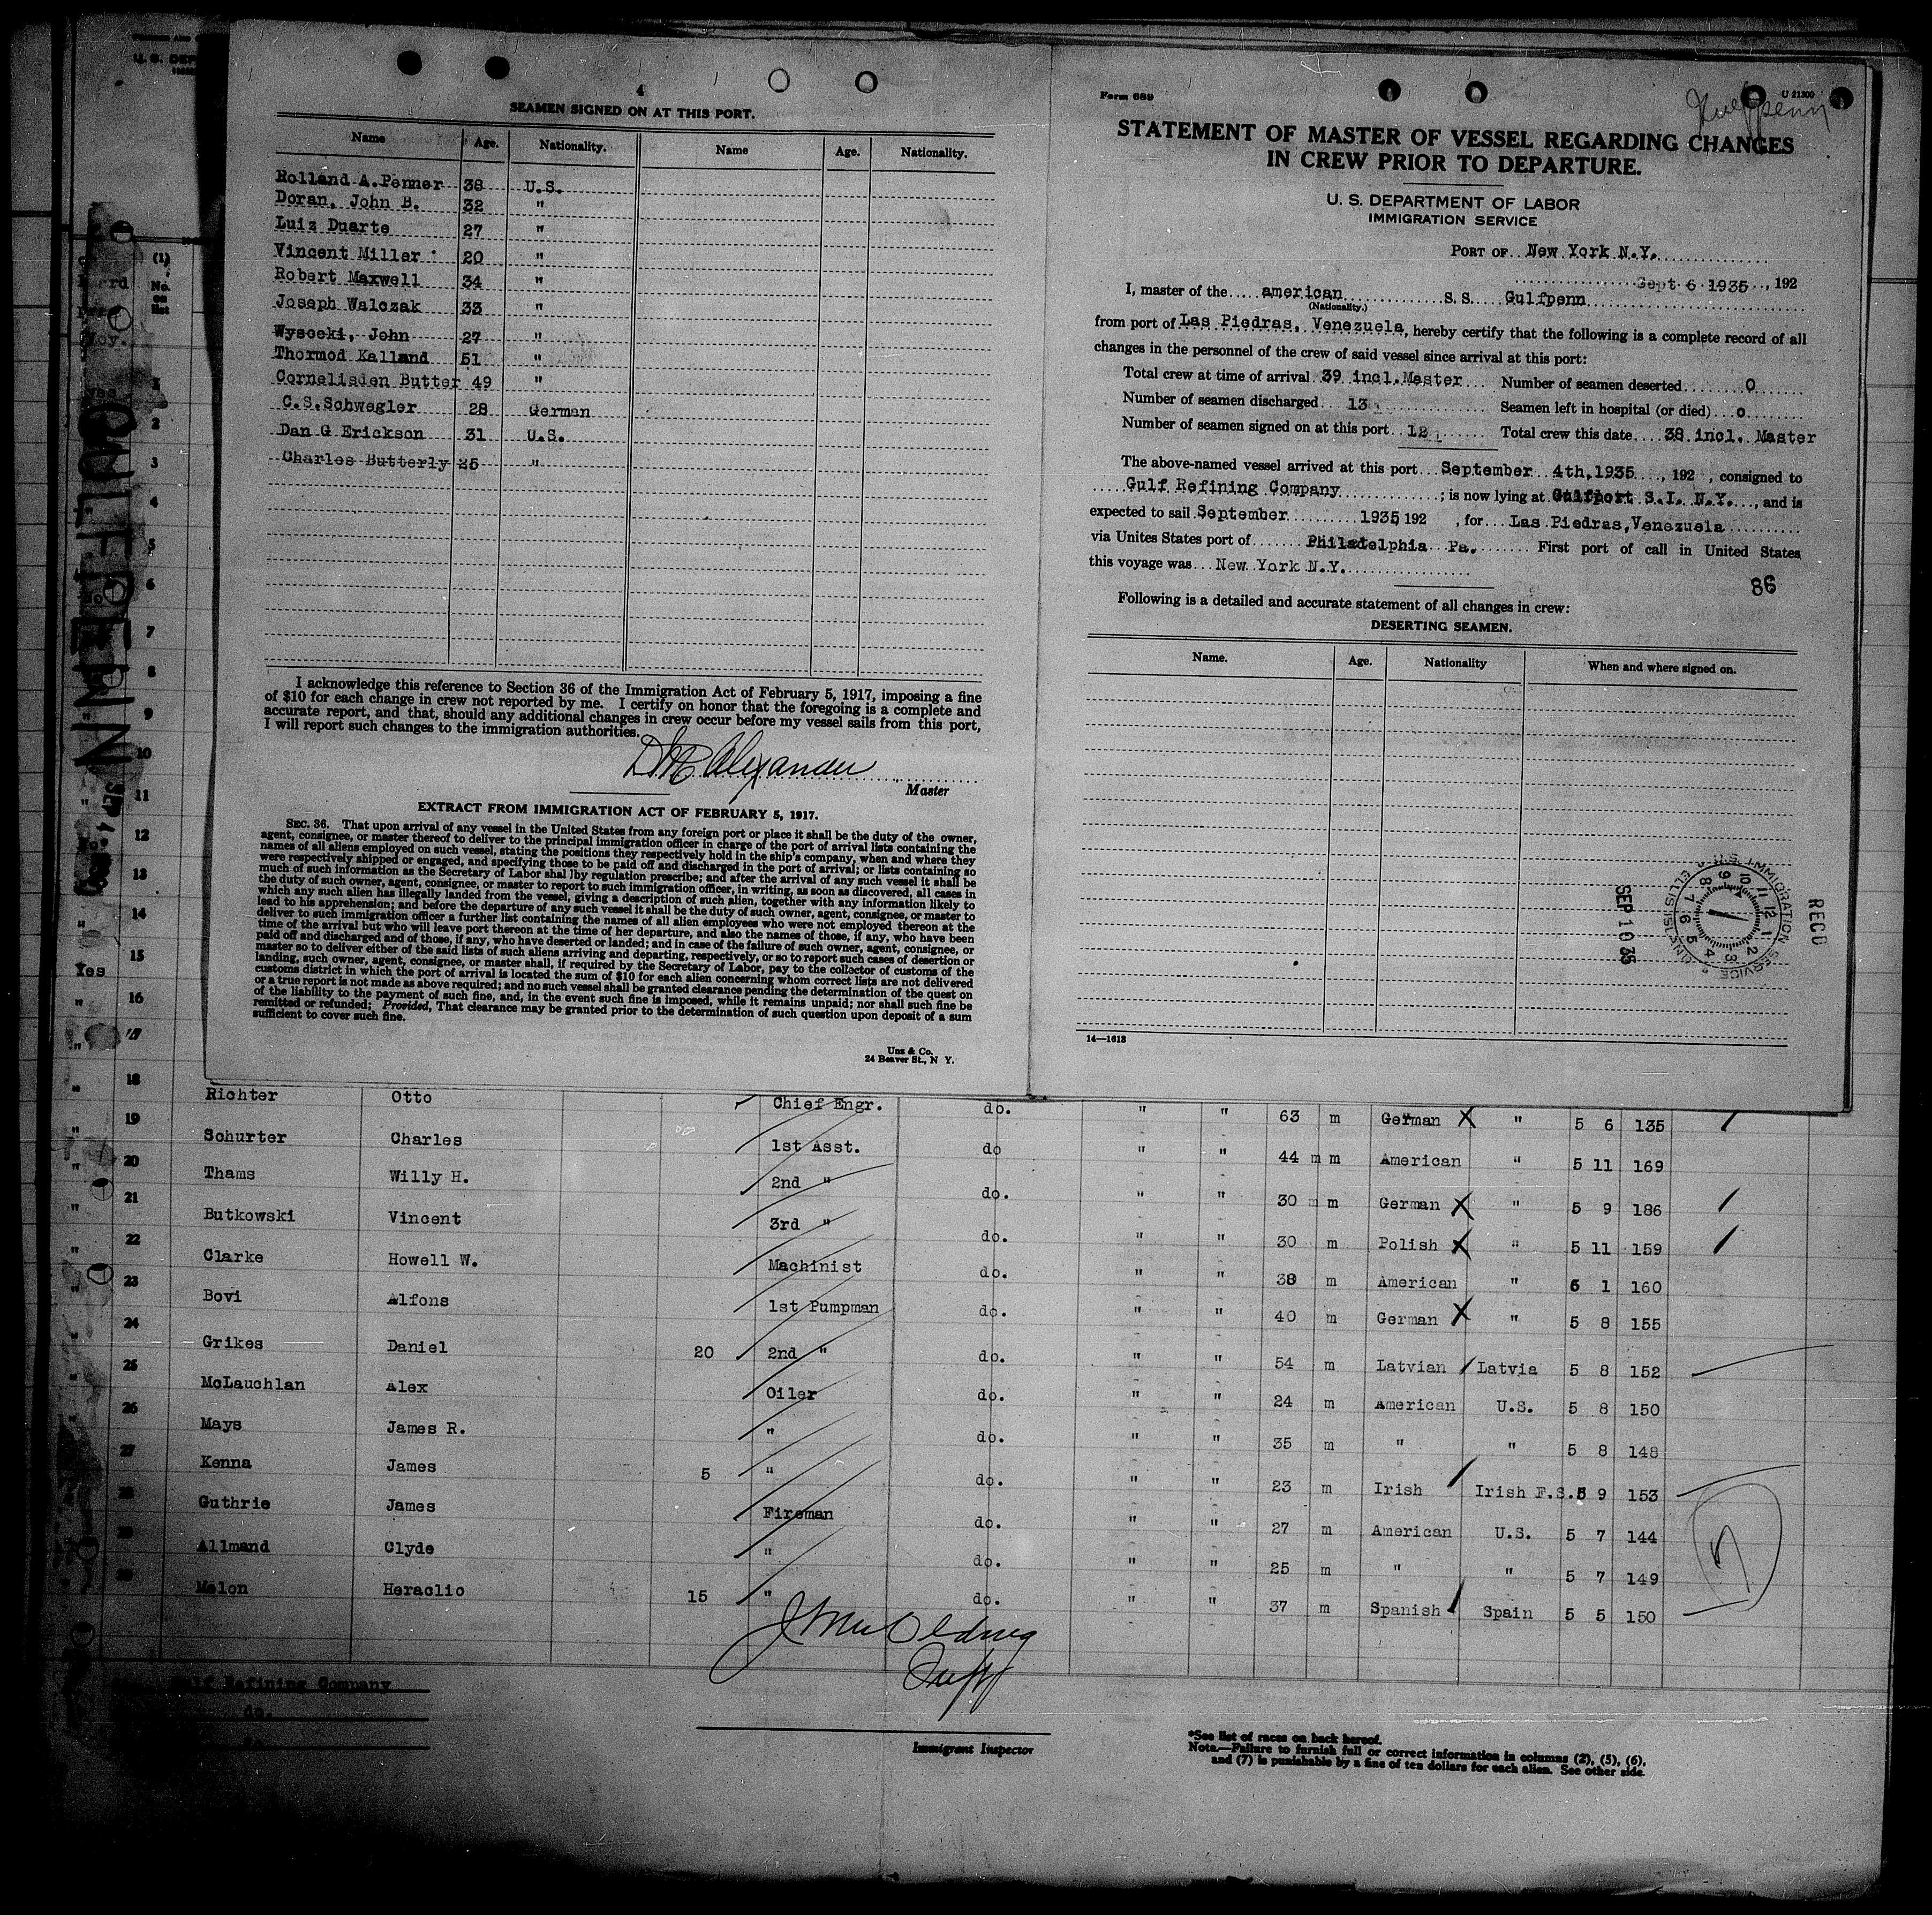 4
SEAMEN SIGNED ON AT THIS PORT.
Name Age. Nationality. Name Age. Nationality.
Rolland A.Penner 38 U.S.
Doran, John B. 32 "
Luiz Duarte 27 "
Vincent Millar 20 "
Robert Maxwell 34 "
Joseph Walczak 33 "
Wysocki, John 27 "
Thormod Kalland 51 "
Cornelisden Butter 49 "
C.S.Schwegler 28 German
Dan G Erickson 31 U.S.
Charles Butterly 25 "
I acknowledge this reference to Section 36 of the Immigration Act of February 5, 1917, imposing a fine
of $10 for each change in crew not reported by me. I certify on honor that the foregoing is a complete and
accurate report, and that, should any additional changes in crew occur before my vessel sails from this port,
I will report such changes to the immigration authorities.
Alexander
Master
EXTRACT FROM IMMIGRATION ACT OF FEBRUARY 5, 1917.
SEC. 36. That upon arrival of any vessel in the United States from any foreign port or place it shall be the duty of the owner,
agent, consignee, or master thereof to deliver to the principal immigration officer in charge of the port of arrival lists containing the
names of all aliens employed on such vessel, stating the positions they respectively hold in the ship's company, when and where they
were respectively shipped or engaged, and specifying those to be paid off and discharged in the port of arrival; or lists containing so
much of such information as the Secretary of Labor shal lby regulation prescribe; and after the arrival of any such vessel it shall be
the duty of such owner, agent, consignee, or master to report to such immigration officer, in writing, as soon as discovered, all cases in
which any such alien has illegally landed from the vessel, giving a description of such alien, together with any information likely to
lead to his apprehension; and before the departure of any such vessel it shall be the duty of such owner, agent, consignee, or master to
deliver to such immigration officer a further list containing the names of all alien employees who were not employed thereon at the
time of the arrival but who will leave port thereon at the time of her departure, and also the names of those, if any, who have been
paid off and discharged and of those, if any, who have deserted or landed; and in case of the failure of such owner, agent, consignee, or
master so to deliver either of the said lists of such aliens arriving and departing, respectively, or so to report such cases of desertion or
landing, such owner, agent, consignee, or master shall, if required by the Secretary of Labor, pay to the collector of customs of the
customs district in which the port of arrival is located the sum of $10 for each alien concerning whom correct lists are not delivered
or a true report is not made as above required; and no such vessel shall be granted clearance pending the determination of the quest on
of the liability to the payment of such fine, and, in the event such fine is imposed, while it remains unpaid; nor shall such fine be
remitted or refunded; Provided, That clearance may be granted prior to the determination of such question upon deposit of a sum
sufficient to cover such fine.
Uns & Co.
24 Beaver St., N Y.
Form 689
U 21300
Gulfpenn
STATEMENT OF MASTER OF VESSEL REGARDING CHANGES
IN CREW PRIOR TO DEPARTURE.
U. S. DEPARTMENT OF LABOR
IMMIGRATION SERVICE
PORT OF New York N.Y.
Sept 6 1935, 192
I, master of the american S. S. Gulfpenn
(Nationality.)
from port of Las Piedras, Venezuela, hereby certify that the following is a complete record of all
changes in the personnel of the crew of said vessel since arrival at this port:
Total crew at time of arrival 39 incl.Master Number of seamen deserted 0
Number of seamen discharged 13 Seamen left in hospital (or died) 0
Number of seamen signed on at this port 12 Total crew this date 38 incl. Master
The above-named vessel arrived at this port September 4th,1935, 192 , consigned to
Gulf Refining Company ; is now lying at Gulfport S.I. N.Y., and is
expected to sail September 1935 192 , for Las Piedras,Venezuela
via Unites States port of Philadelphia Pa. First port of call in United States
this voyage was New York N.Y.
86
Following is a detailed and accurate statement of all changes in crew:
DESERTING SEAMEN.
Name. Age. Nationality When and where signed on.
RECD
U.S. IMMIGRATION SERVICE ELLIS ISLAND
SEP 10 35
14—1613
GULFPENN
SEP 4
(1)
No.
on
list
1
2
3
4
5
6
7
8
9
10
11
12
13
14
15
Yes
16
17
18 Richter Otto Chief Engr. do. " " 63 m German X " 5 6 135
19 Schurter Charles 1st Asst. do " " 44 m m American " 5 11 169
20 Thams Willy H. 2nd " do. " " 30 m m German X " 5 9 186
21 Butkowski Vincent 3rd " do. " " 30 m Polish X " 5 11 159
22 Clarke Howell W. Machinist do. " " 38 m American " 6 1 160
23 Bovi Alfons 1st Pumpman do. " " 40 m German X " 5 8 155
24 Grikes Daniel 20 2nd " do. " " 54 m Latvian Latvia 5 8 152
25 McLauchlan Alex Oiler do. " " 24 m American U.S. 5 8 150
26 Mays James R. " do. " " 35 m " " 5 8 148
27 Kenna James 5 " do. " " 23 m Irish Irish F.S. 5 9 153
28 Guthrie James Fireman do. " " 27 m American U.S. 5 7 144
29 Allmand Clyde " do. " " 25 m " " 5 7 149
30 Melon Heraclio 15 " do. " " 37 m Spanish Spain 5 5 150
7
Gulf Refining Company
do.
Immigrant Inspector
*See list of races on back hereof.
Note.—Failure to furnish full or correct information in columns (2), (5), (6),
and (7) is punishable by a fine of ten dollars for each alien. See other side.